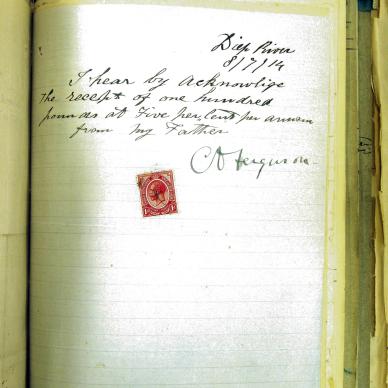 Diep River
8/7/14
I hear by acknowlige
the receipt of one hundred
pounds at Five per Cent per annum
from my Father
C A Ferguson